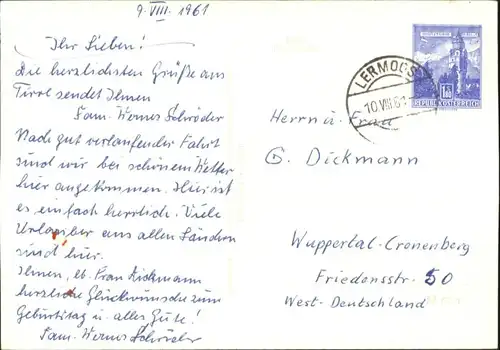 9. VIII. 1961
Ihr Lieben!
Die herzlichsten Grüße aus
Tirol sendet Ihnen
Fam. Werner Schröder
Nach gut verlaufender Fahrt
sind wir bei schönem Wetter
hier angekommen. Hier ist
es einfach herrlich. Viele
Urlauber aus allen Ländern
sind hier.
Ihnen, lb. Frau Dickmann
herzliche Glückwünsche zum
Geburtstag u. alles Gute!
Fam. Werner Schröder
LERMOOS
10.VIII.61
REPUBLIK ÖSTERREICH
Herrn u. Frau
G. Dickmann
Wuppertal-Cronenberg
Friedensstr. 50
West-Deutschland